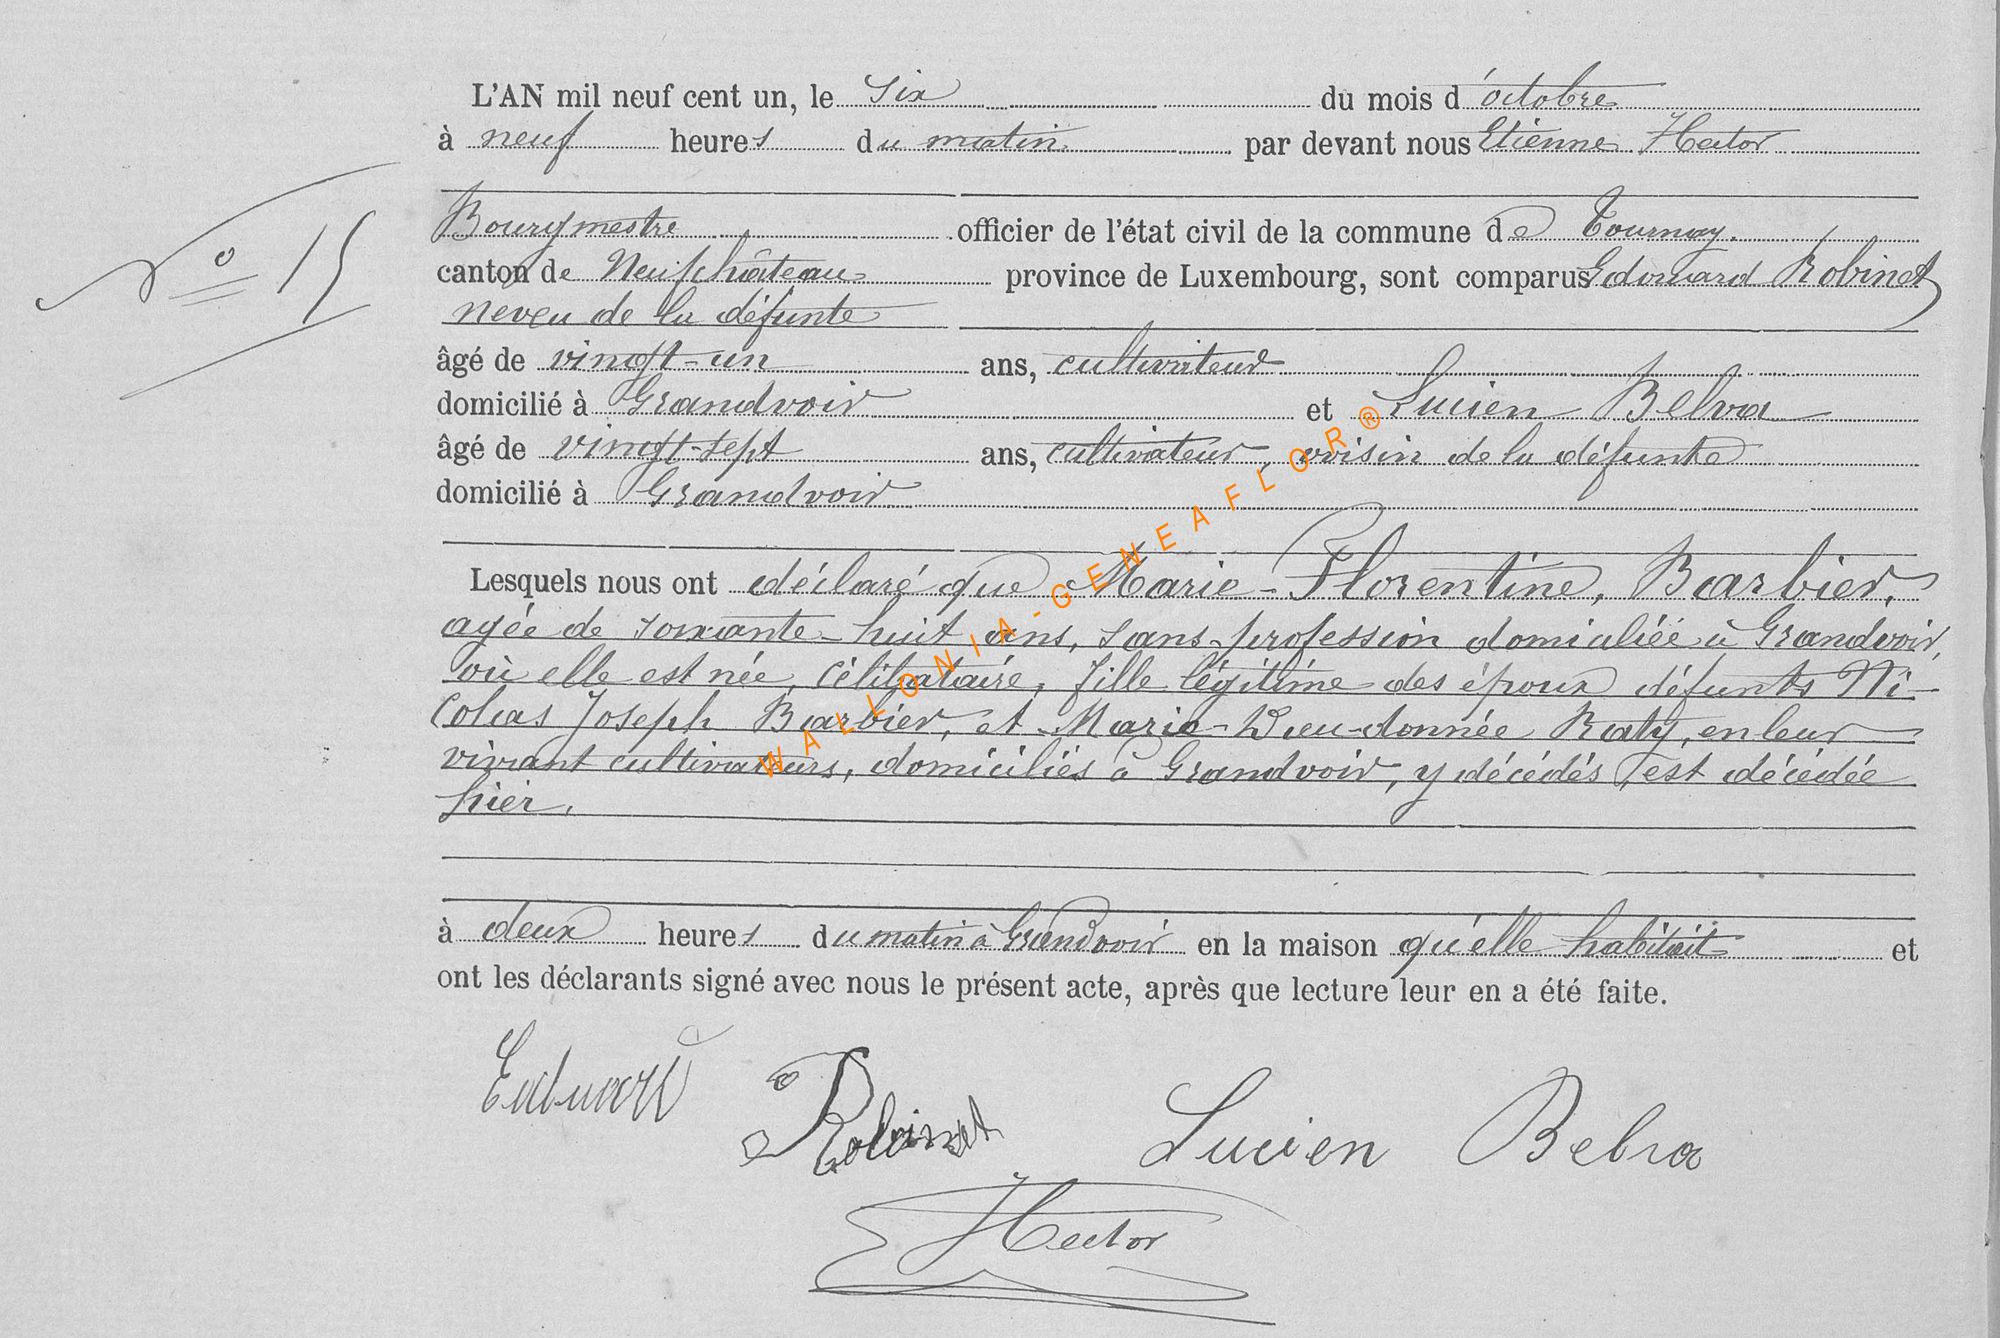 L'AN mil neuf cent un, le six du mois d'octobre
à neuf heures du matin par devant nous Etienne Hector
N° 15
Bourgmestre officier de l'état civil de la commune de Tournay.
canton de Neufchâteau province de Luxembourg, sont comparus Edouard Robinet
neveu de la défunte
âgé de vingt-un ans, cultivateur
domicilié à Grandvoir et Lucien Belva
âgé de vingt-sept ans, cultivateur, voisin de la défunte
domicilié à Grandvoir
Lesquels nous ont déclaré que Marie-Florentine, Barbier,
agée de soixante-huit ans, sans profession domiciliée à Grandvoir,
où elle est née, célibataire, fille légitime des époux défunts Ni-
colas Joseph Barbier, et Marie-Dieu-donnée Raty, en leur
vivant cultivateurs, domiciliés à Grandvoir, y décédés, est décédée
hier,
à deux heures du matin à Grandvoir en la maison qu'elle habitait et
ont les déclarants signé avec nous le présent acte, après que lecture leur en a été faite.
Edouard Robinet Lucien Belva
Hector
WALLONIA-GENEAFLOR®